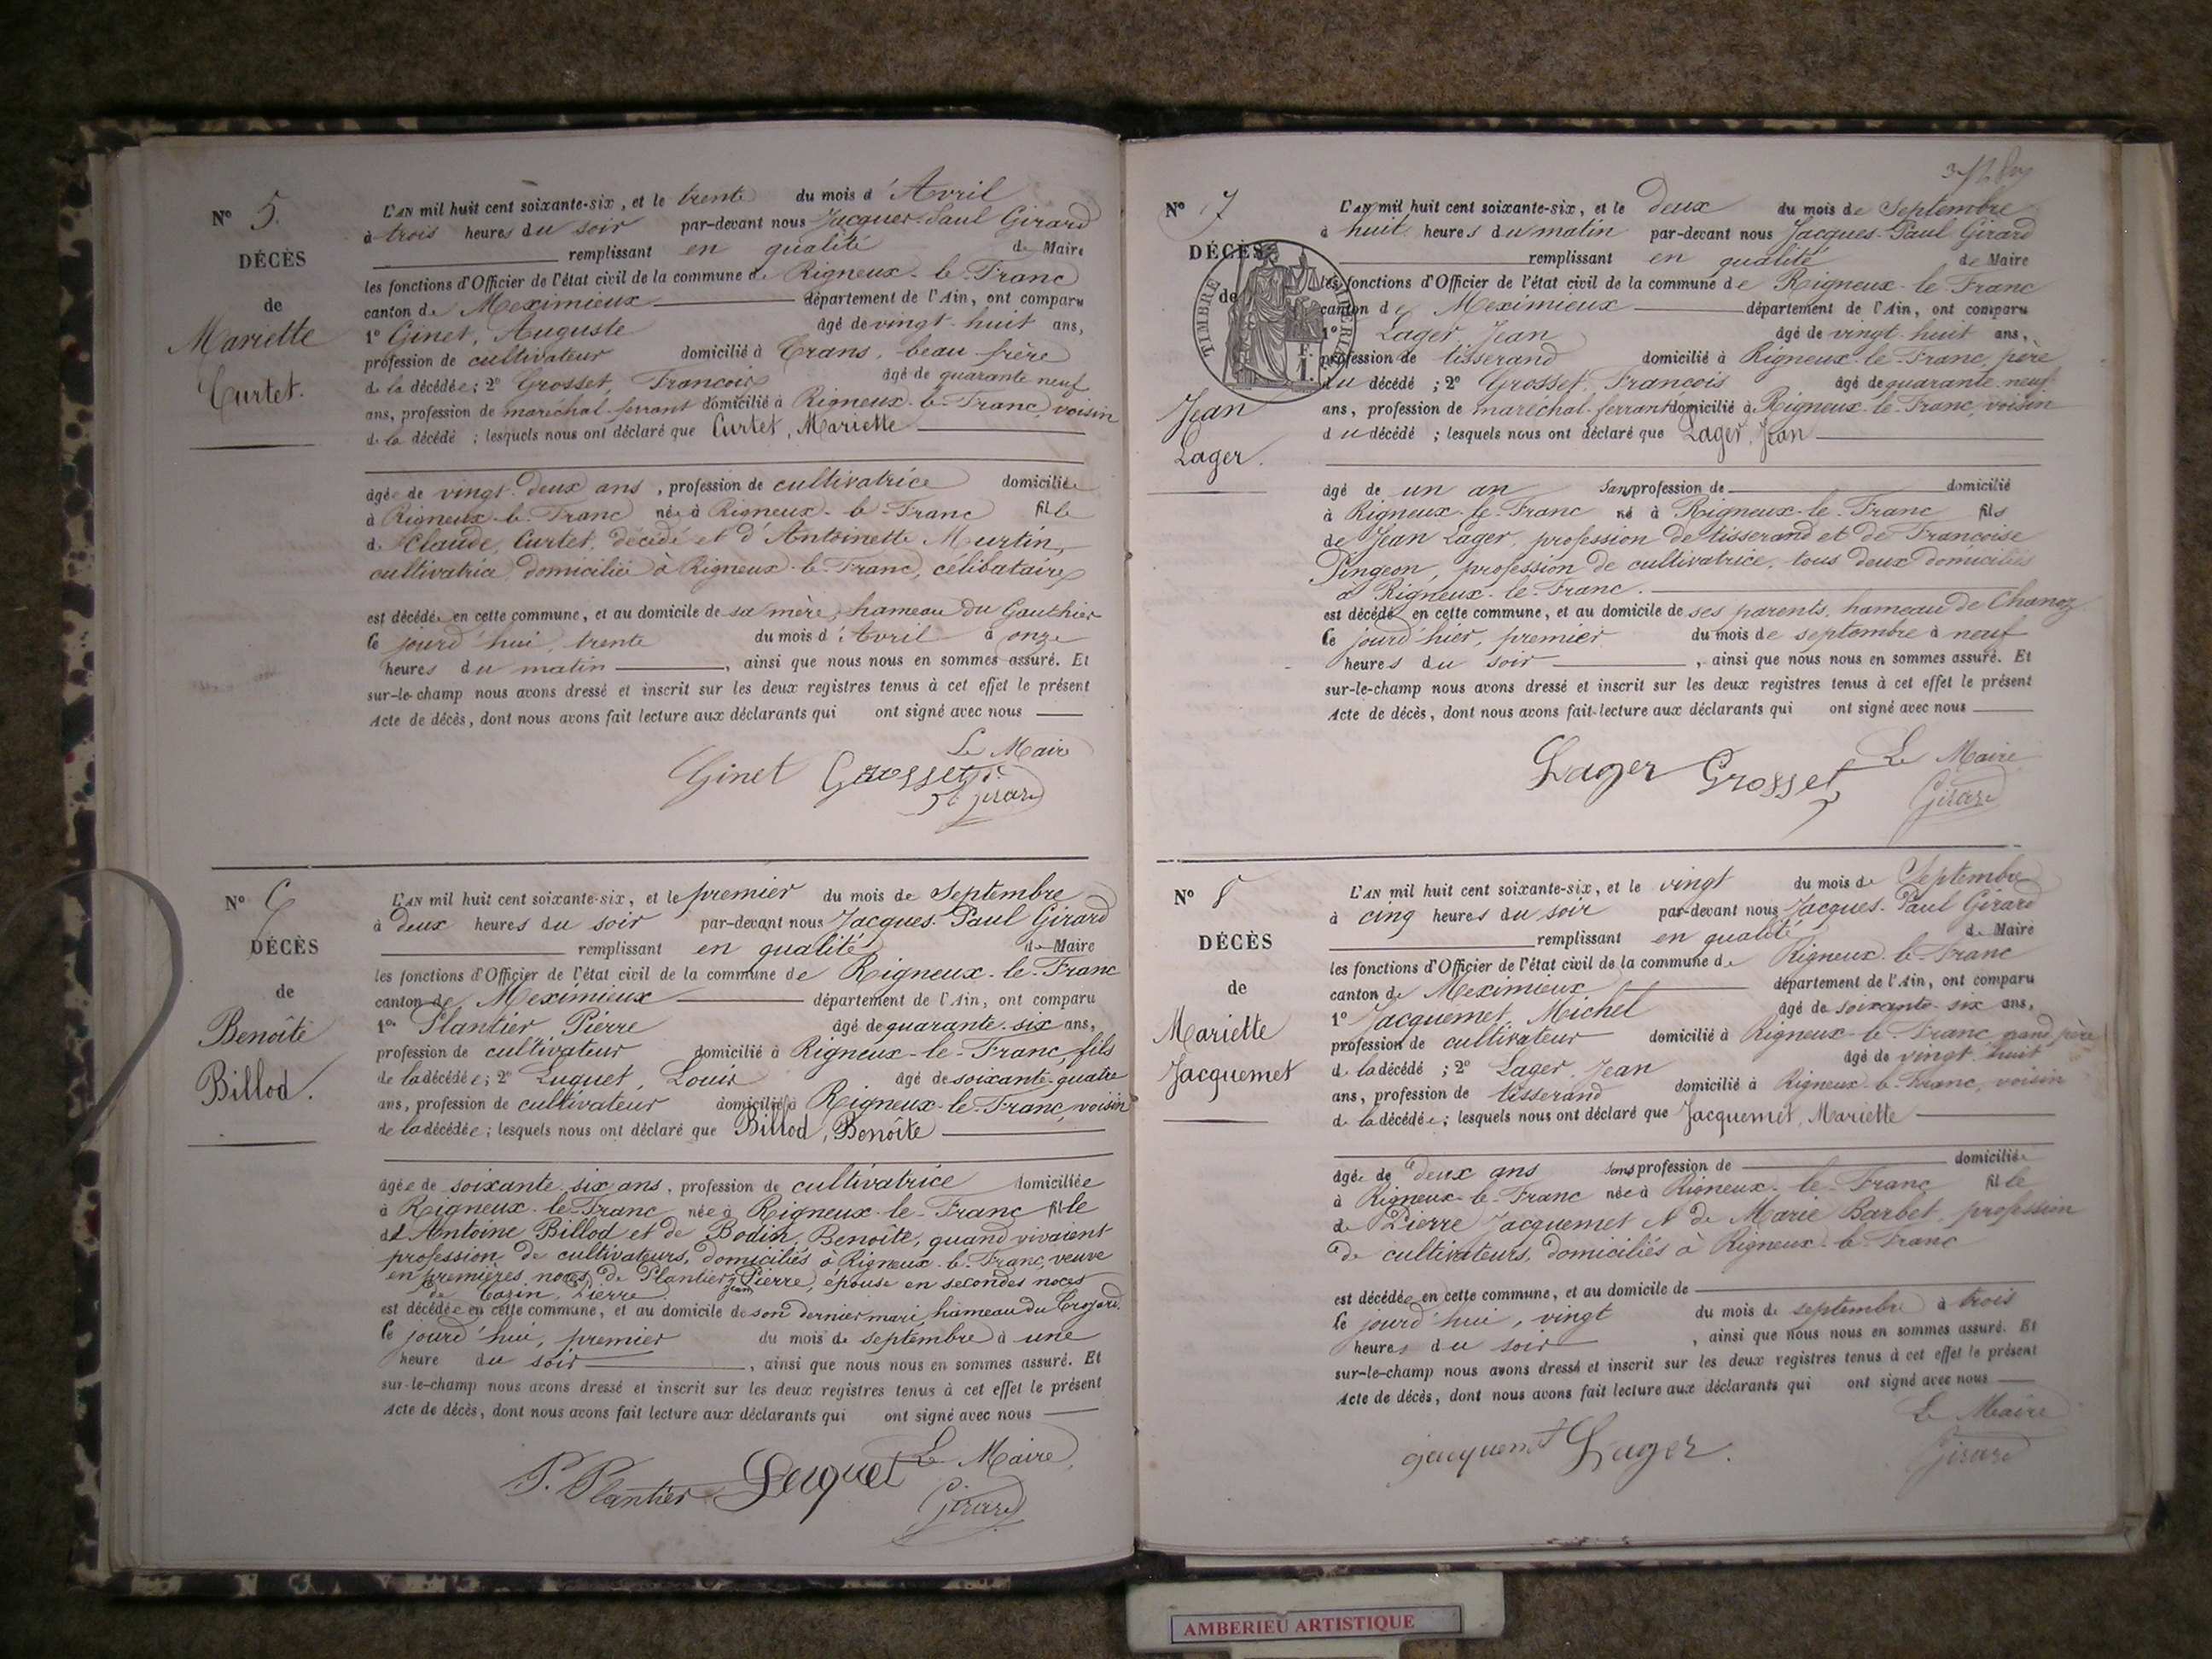 N° 5.
DÉCÈS
de
Mariette
Curtet.
L'AN mil huit cent soixante-six, et le trente du mois d'Avril
à trois heures du soir par-devant nous Jacques Paul Girard
remplissant en qualité de Maire
les fonctions d'Officier de l'état civil de la commune de Rigneux-le-Franc
canton de Meximieux département de l'Ain, ont comparu
1° Ginet, Auguste âgé de vingt-huit ans,
profession de cultivateur domicilié à Crans, beau frère
de la décédée; 2° Grosset, François âgé de quarante neuf
ans, profession de maréchal-ferrant domicilié à Rigneux-le-Franc, voisin
de la décédé; lesquels nous ont déclaré que Curtet, Mariette
âgée de vingt-deux ans, profession de cultivatrice domiciliée
à Rigneux-le-Franc née à Rigneux-le-Franc fille
de Claude Curtet, décédé et d'Antoinette Murtin,
cultivatrice, domiciliée à Rigneux-le-Franc, célibataire
est décédée en cette commune, et au domicile de sa mère, hameau du Gauthier
Ce jourd'hui, trente du mois d'Avril à onze
heures du matin, ainsi que nous nous en sommes assuré. Et
sur-le-champ nous avons dressé et inscrit sur les deux registres tenus à cet effet le présent
Acte de décès, dont nous avons fait lecture aux déclarants qui ont signé avec nous
Le Maire
Ginet Grosset
Girard
N° 6
DÉCÈS
de
Benoîte
Billod.
L'AN mil huit cent soixante-six, et le premier du mois de Septembre
à deux heures du soir par-devant nous Jacques-Paul Girard
remplissant en qualité de Maire
les fonctions d'Officier de l'état civil de la commune de Rigneux-le-Franc
canton de Meximieux département de l'Ain, ont comparu
1° Plantier, Pierre âgé de quarante-six ans,
profession de cultivateur domicilié à Rigneux-le-Franc, fils
de la décédée; 2° Luquet, Louis âgé de soixante-quatre
ans, profession de cultivateur domicilié à Rigneux-le-Franc, voisin
de la décédée; lesquels nous ont déclaré que Billod, Benoîte
âgée de soixante-six ans, profession de cultivatrice domiciliée
à Rigneux-le-Franc née à Rigneux-le-Franc fille
d'Antoine Billod et de Bodin, Benoîte, quand vivaient
profession de cultivateurs, domiciliés à Rigneux-le-Franc, veuve
en premières noces de Plantier, Pierre, épouse en secondes noces
de Pierre
est décédée en cette commune, et au domicile de son dernier mari, hameau du
Ce jourd'hui, premier du mois de septembre à une
heure du soir, ainsi que nous nous en sommes assuré. Et
sur-le-champ nous avons dressé et inscrit sur les deux registres tenus à cet effet le présent
Acte de décès, dont nous avons fait lecture aux déclarants qui ont signé avec nous
P. Plantier Luquet Le Maire,
Girard
N° 7
DÉCÈS
de
Jean
Lager.
TIMBRE IMPERIAL
L'AN mil huit cent soixante-six, et le deux du mois de Septembre
à huit heures du matin par-devant nous Jacques-Paul Girard
remplissant en qualité de Maire
les fonctions d'Officier de l'état civil de la commune de Rigneux-le-Franc
canton de Meximieux département de l'Ain, ont comparu
1° Lager, Jean âgé de vingt-huit ans,
profession de tisserand domicilié à Rigneux-le-Franc, père
du décédé; 2° Grosset, François âgé de quarante-neuf
ans, profession de maréchal-ferrant domicilié à Rigneux-le-Franc, voisin
du décédé; lesquels nous ont déclaré que Lager, Jean
âgé de un an sans profession de domicilié
à Rigneux-le-Franc né à Rigneux-le-Franc fils
de Jean Lager, profession de tisserand et de Françoise
Pingeon, profession de cultivatrice, tous deux domiciliés
à Rigneux-le-Franc.
est décédé en cette commune, et au domicile de ses parents, hameau de Chanoz
Ce jourd'hier, premier du mois de septembre à neuf
heures du soir, ainsi que nous nous en sommes assuré. Et
sur-le-champ nous avons dressé et inscrit sur les deux registres tenus à cet effet le présent
Acte de décès, dont nous avons fait lecture aux déclarants qui ont signé avec nous
Lager Grosset Le Maire
Girard
N° 8
DÉCÈS
de
Mariette
Jacquemet
L'AN mil huit cent soixante-six, et le vingt du mois de Septembre
à cinq heures du soir par-devant nous Jacques-Paul Girard
remplissant en qualité de Maire
les fonctions d'Officier de l'état civil de la commune de Rigneux-le-Franc
canton de Meximieux département de l'Ain, ont comparu
1° Jacquemet, Michel âgé de soixante-six ans,
profession de cultivateur domicilié à Rigneux-le-Franc, grand père
de la décédé; 2° Lager, Jean âgé de vingt-huit
ans, profession de tisserand domicilié à Rigneux-le-Franc, voisin
de la décédée; lesquels nous ont déclaré que Jacquemet, Mariette
âgée de deux ans sans profession de domiciliée
à Rigneux-le-Franc née à Rigneux-le-Franc fille
de Pierre Jacquemet et de Marie Barbet, profession
de cultivateurs, domiciliés à Rigneux-le-Franc
est décédée en cette commune, et au domicile de
Ce jourd'hui, vingt du mois de septembre à trois
heures du soir, ainsi que nous nous en sommes assuré. Et
sur-le-champ nous avons dressé et inscrit sur les deux registres tenus à cet effet le présent
Acte de décès, dont nous avons fait lecture aux déclarants qui ont signé avec nous
Le Maire
Jacquemet Lager.
Girard
AMBERIEU ARTISTIQUE